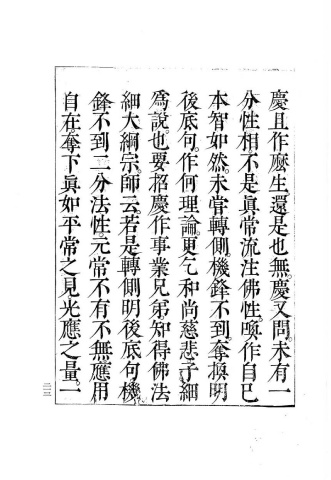 慶且作麼生還是也無慶又問。未有一
分性相不是眞常流注佛性。喚作自己
本智如然。未甞轉側。機鋒不到。奪換明
後底句。作何理論。更乞和尚慈悲。子細
爲說也要招慶作事業兄弟知得佛法
細大綱宗。師云若是轉側明後底句機
鋒不到二分法性。元常不有不無應用
自在奪下眞如平常之見光應之量。一
二三